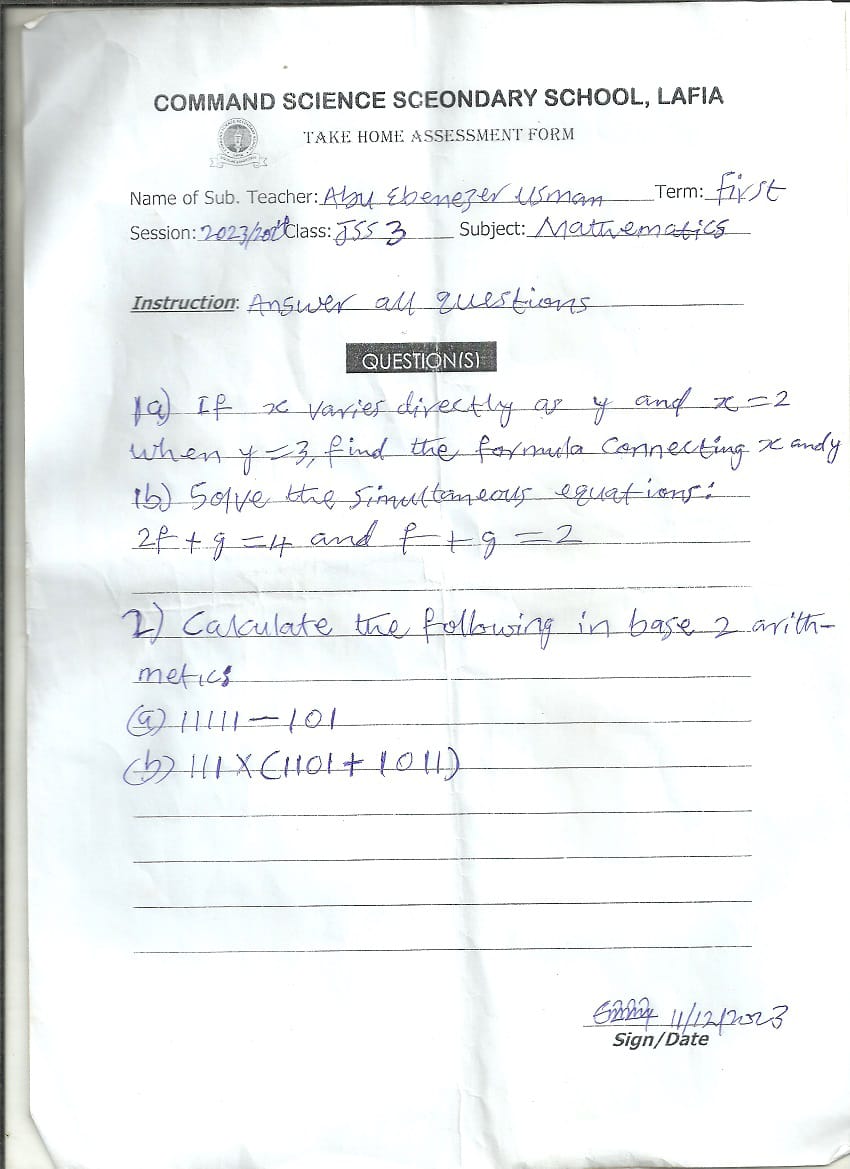 COMMAND SCIENCE SCEONDARY SCHOOL, LAFIA
TAKE HOME ASSESSMENT FORM
Name of Sub. Teacher: Abu Ebenezer Usman Term: First
Session: 2023/2024 Class: JSS 3 Subject: Mathematics
Instruction: Answer all questions
QUESTION(S)
1a) If x varies directly as y and x = 2
when y = 3, find the formula connecting x and y
1b) Solve the simultaneous equations:
2f + g = 4 and f + g = 2
2) Calculate the following in base 2 arith-
metics
(a) 11111 - 101
(b) 111 X (1101 + 1011)
11/12/2023
Sign/Date